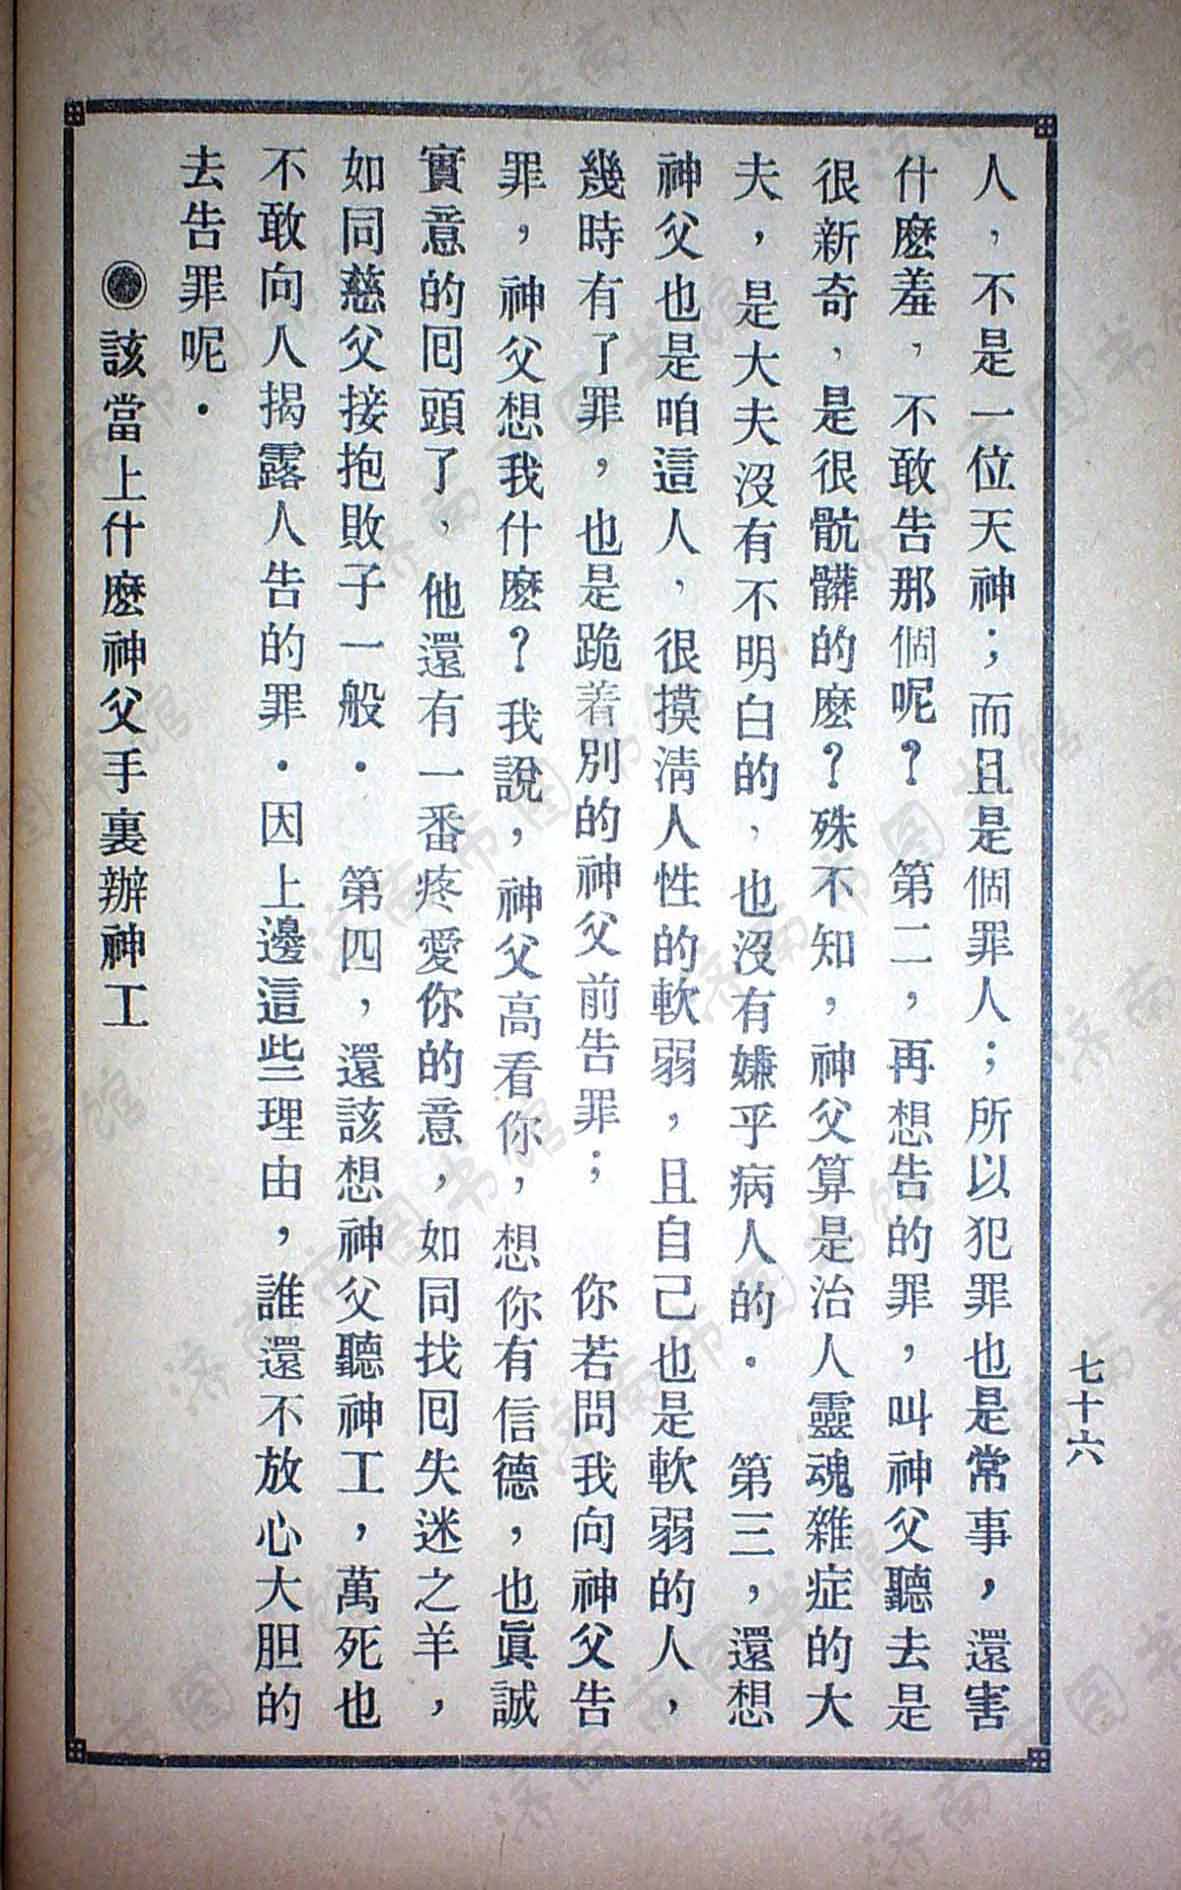 人，不是一位天神；而且是個罪人；所以犯罪也是常事，還害
什麽羞，不敢告那個呢？　第二，再想告的罪，叫神父聽去是
很新奇，是很骯髒的麽？殊不知，神父算是治人靈魂雜症的大
夫，是大夫沒有不明白的，也沒有嫌乎病人的．　第三，還想
神父也是咱這人，很摸淸人性的軟弱，且自己也是軟弱的人，
幾時有了罪，也是跪着別的神父前告罪；　你若問我向神父告
罪，神父想我什麽？我說，神父高看你，想你有信德，也眞誠
實意的囘頭了，他還有一番疼愛你的意，如同找囘失迷之羊，
如同慈父接抱敗子一般．　第四，還該想神父聽神工，萬死也
不敢向人揭露人告的罪．因上邊這些理由，誰還不放心大胆的
去告罪呢．
◉該當上什麽神父手裏辦神工
七十六